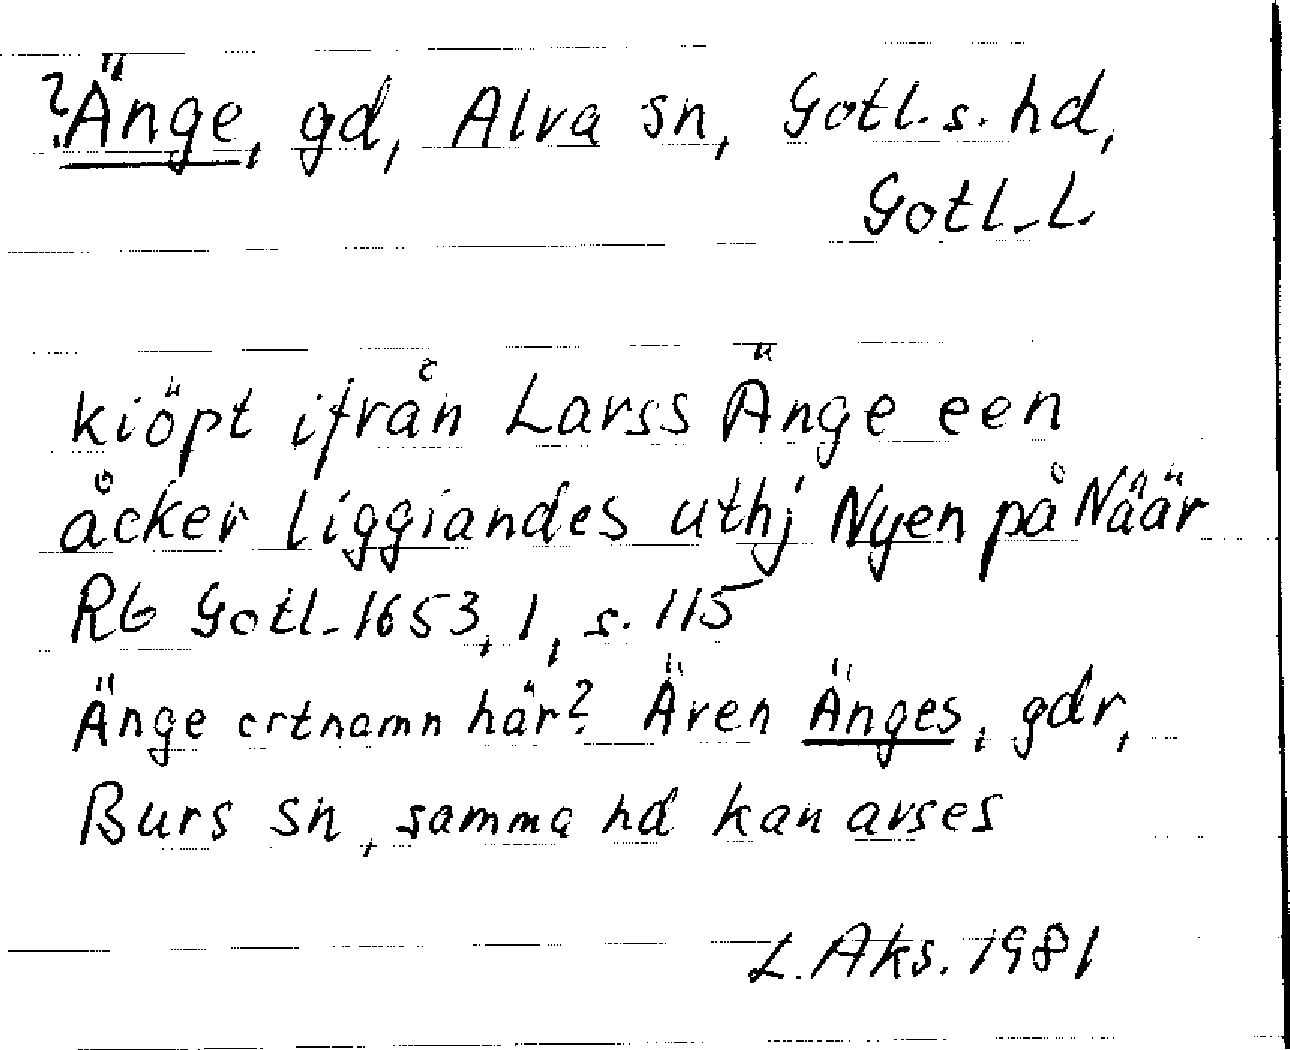 ?Änge, gd, Alva sn, Gotl. s. hd,
Gotl. L.
kiöpt ifrån Larss Änge een
åcker liggiandes uthj Nyen på Näär
Rb Gotl. 1653, 1, s. 115
Änge ortnamn här? Även Änges, gdr,
Burs sn, samma hd kan avses
L. Aks. 1981